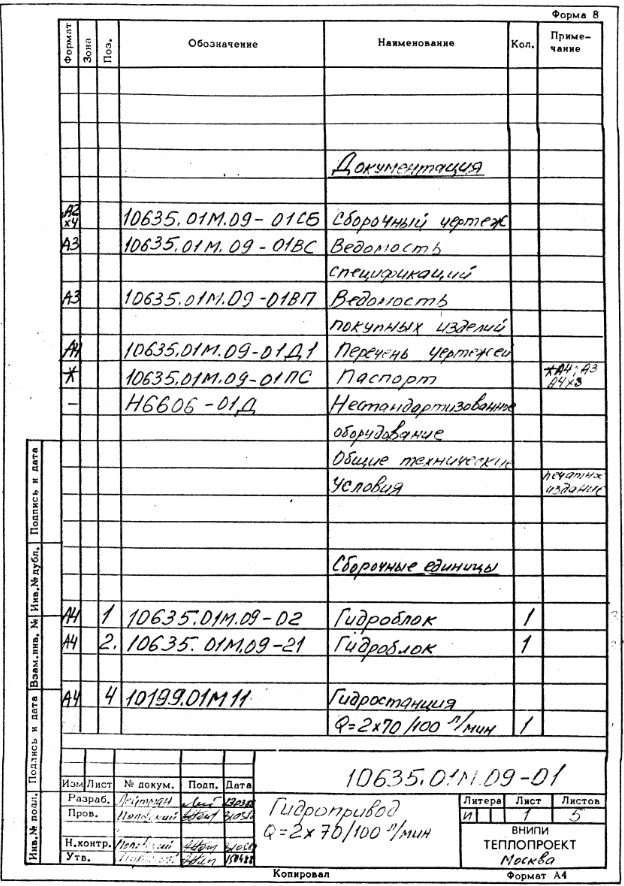 Форма 8
Формат Зона Поз. Обозначение Наименование Кол. Приме-
чание
Документация
А2
х4 10635.01М.09-01СБ Сборочный чертеж
А3 10635.01М.09-01ВС Ведомость
спецификаций
А3 10635.01М.09-01ВП Ведомость
покупных изделий
А4 10635.01М.09-01Д1 Перечень чертежей
* 10635.01М.09-01ПС Паспорт *А4; А3
А4х3
– Н6606-01Д Нестандартизованное
оборудование
Общие технические
Условия печатных
издание
Сборочные единицы
А4 1 10635.01М.09-02 Гидроблок 1
А4 2. 10635.01М.09-21 Гидроблок 1
А4 4 10199.01М11 Гидростанция
Q=2х70/100 л/мин 1
Инв.№ подл. Подпись и дата Взам.инв.№ Инв.№дубл. Подпись и дата
10635.01М.09-01
Изм Лист № докум. Подп. Дата
Разраб.
Пров.
Н.контр.
Утв.
Гидропривод
Q=2х70/100 л/мин
Литера Лист Листов
И 1 5
ВНИПИ
ТЕПЛОПРОЕКТ
Москва
Копировал Формат А4